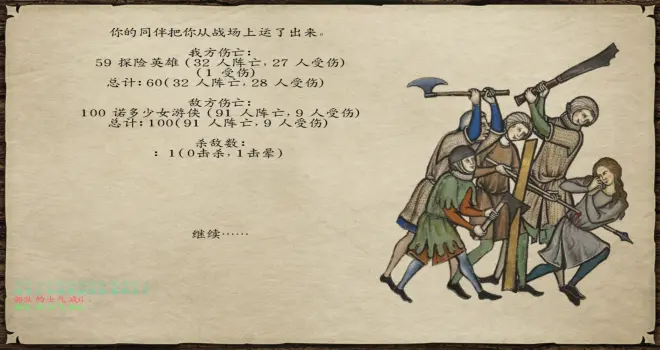 你的同伴把你从战场上运了出来。
我方伤亡:
59 探险英雄 (32 人阵亡,27 人受伤)
(1 受伤)
总计:60(32 人阵亡,28 人受伤)
敌方伤亡:
100 诺多少女游侠 (91 人阵亡,9 人受伤)
总计:100(91 人阵亡,9 人受伤)
杀敌数:
: 1(0击杀,1击晕)
继续……